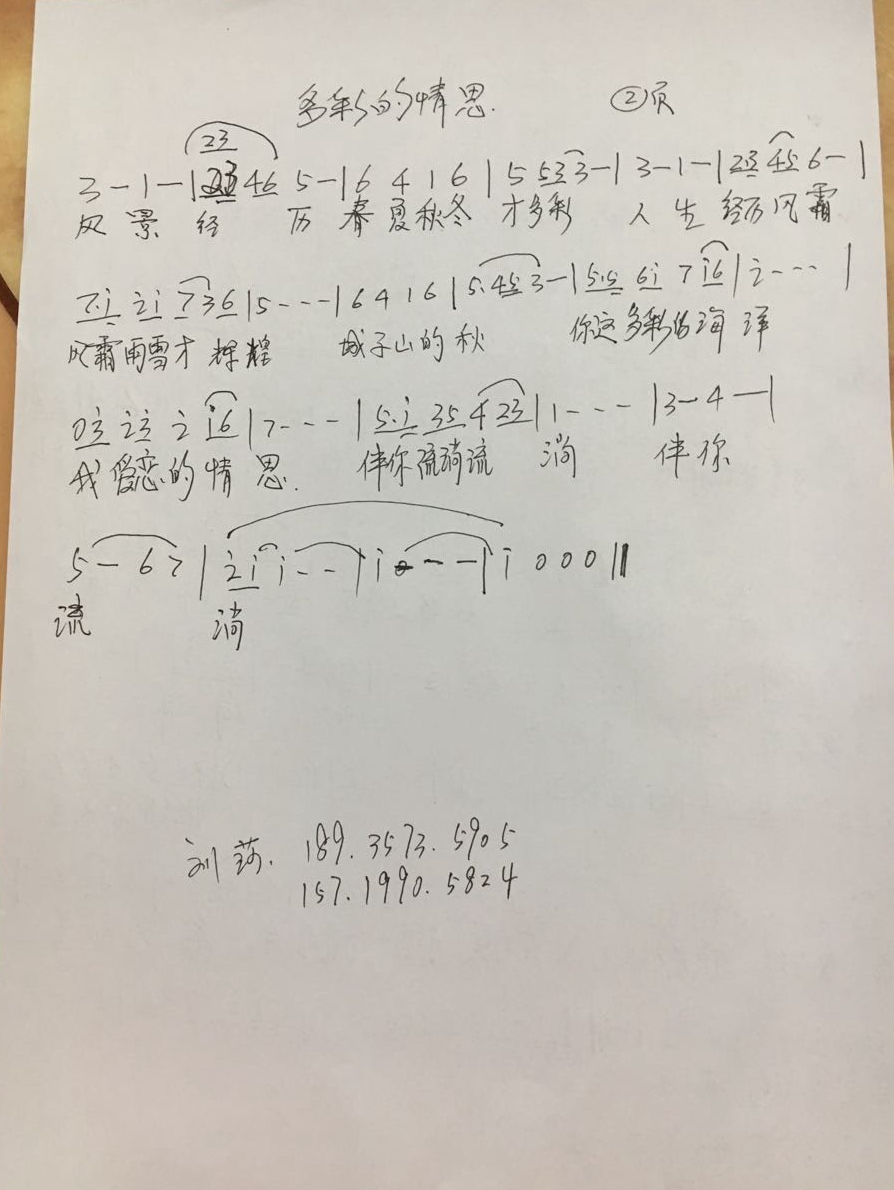 多彩的情思. ②页
23
3 - 1 - | 23 46 5 - | 6 4 1 6 | 5 5 3 3 - | 3 - 1 - | 23 45 6 - |
风景 经 历 春夏秋冬 才多彩 人生 经历风霜
7.i 2i 736 | 5 - - - | 6 4 1 6 | 5.45 3 - | 5.5 6i 7 i6 | 2 - - - |
风霜雨雪才辉煌 城子山的秋 你这多彩的海洋
03 23 2 i6 | 7 - - - | 5.i 35 4 23 | 1 - - - | 3 - 4 - |
我爱恋的情思. 伴你流淌流 淌 伴你
5 - 6 7 | 2i i - - | i - - - | i 0 0 0 ‖
流 淌
刘莎. 189.3573.5905
157.1990.5824